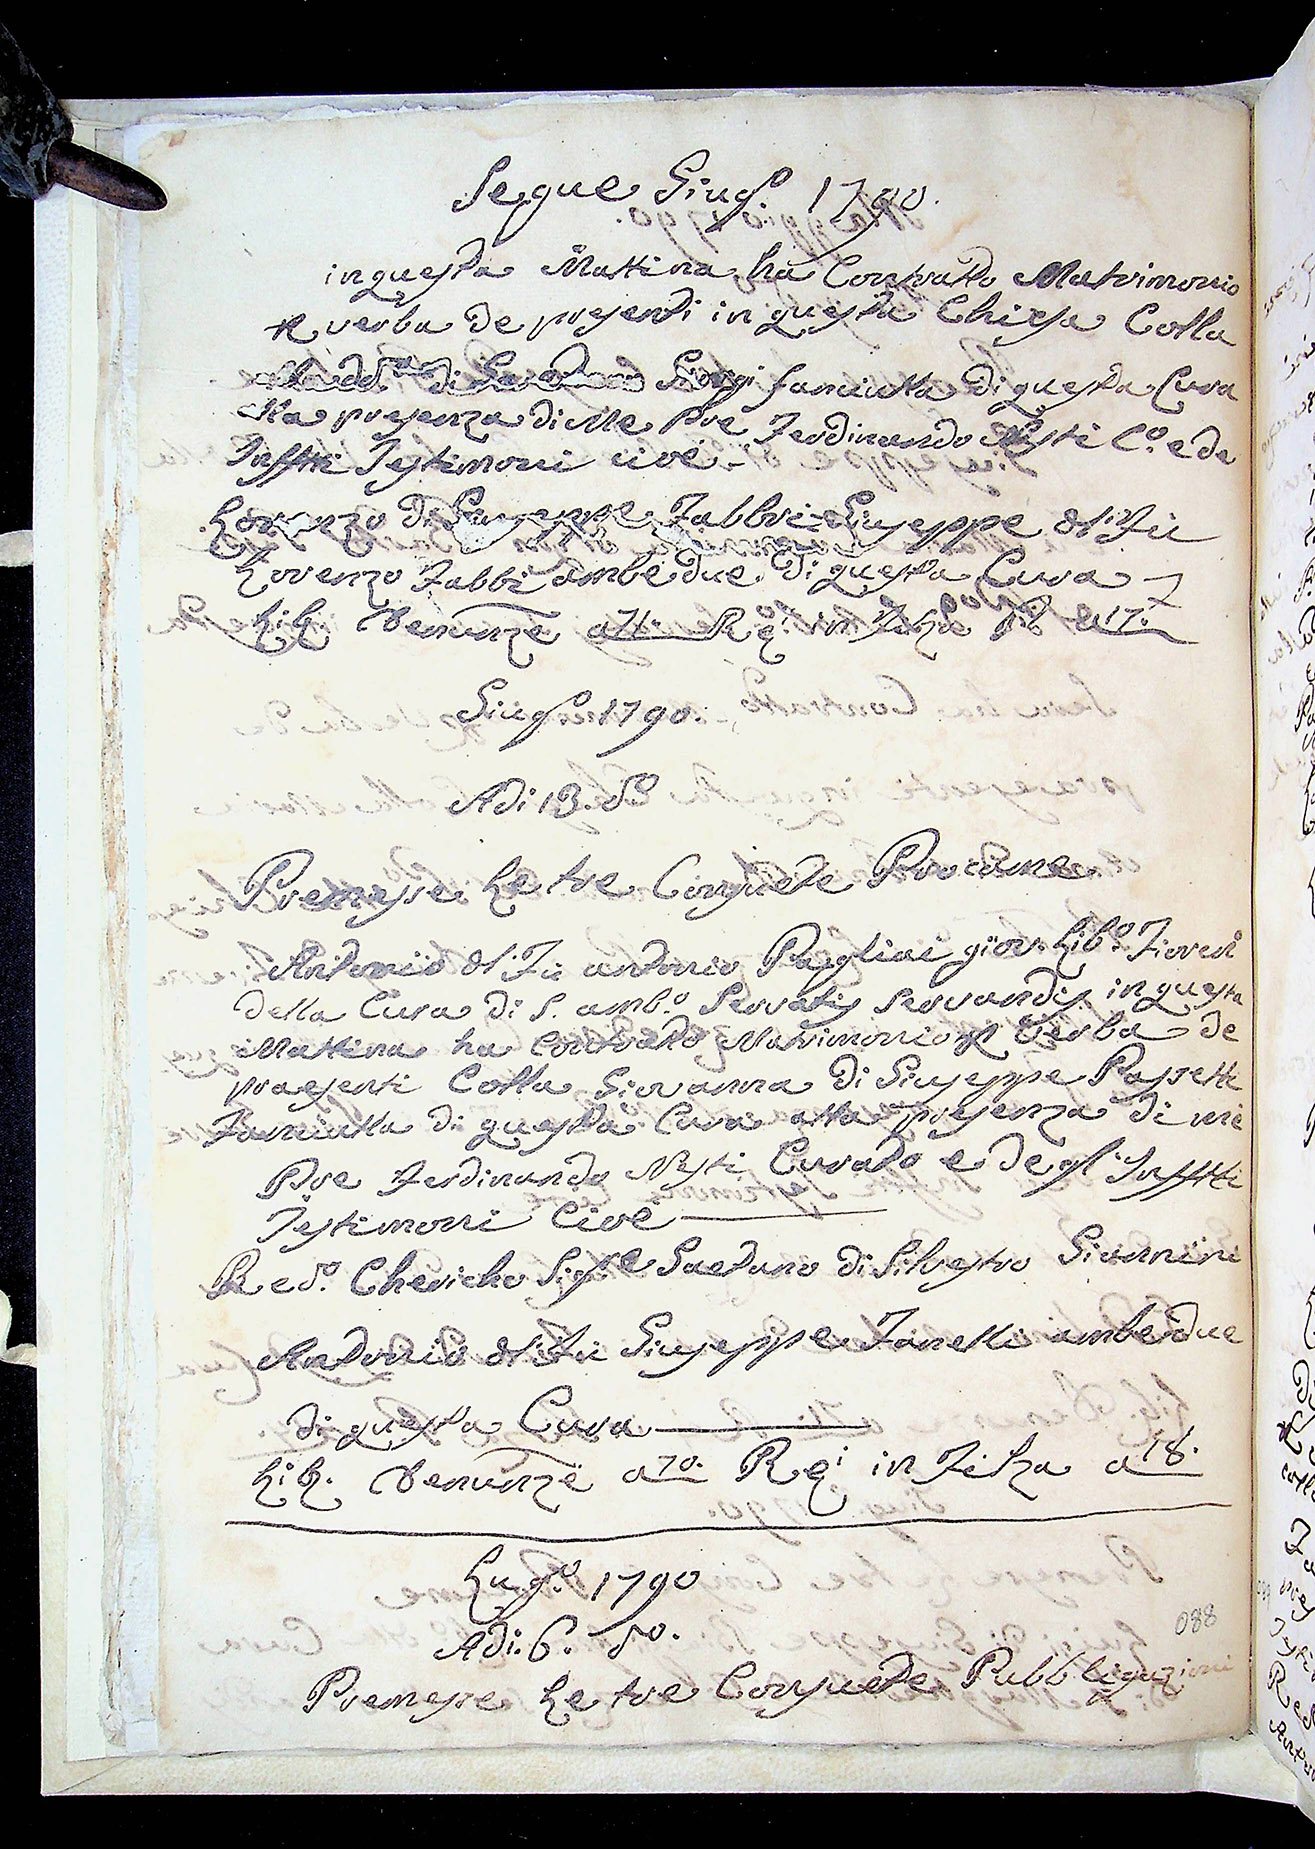 Segue Giug.o 1790.
in questa Mattina ha Contratto Matrimonio
verba de presenti in questa Chiesa Colla
Giorgi fanciulla di questa Cura
alla presenza di Me Pre Ferdinando Nesti C.o e de
Inffrti Testimoni cioè
Lorenzo di Giuseppe Fabbri Giuseppe del Fu
Lorenzo Fabbi ambedue di questa Cura
Lib. Denunze a 71. Reg.i in Filza a 17.
Giug.o 1790.
Adi 13. d.o
Premesse Le tre Consuete Proclame
Antonio del Fu antonio Paglini giov. Lib.o Fioren
della Cura di S. amb.o Servatis servandis in questa
Mattina ha Contratto Matrimonio p Verba de
praesenti Colla Giovanna di Giuseppe Passetti
Fanciulla di questa Cura alla presenza di me
Pre Ferdinando Nesti Curato e degl' Inffrti
Testimoni Cioè
Red.o Chericho Sig.re Gaetano di Silvestro Giovannini
Antonio del Fu Giuseppe Fanelli ambedue
di questa Cura
Lib. Denunze a 70. Reg.i in Filza a 18.
Lug.o 1790
Adi. 6. d.o
Premesse Le tre Consuete Pubbligazioni
088